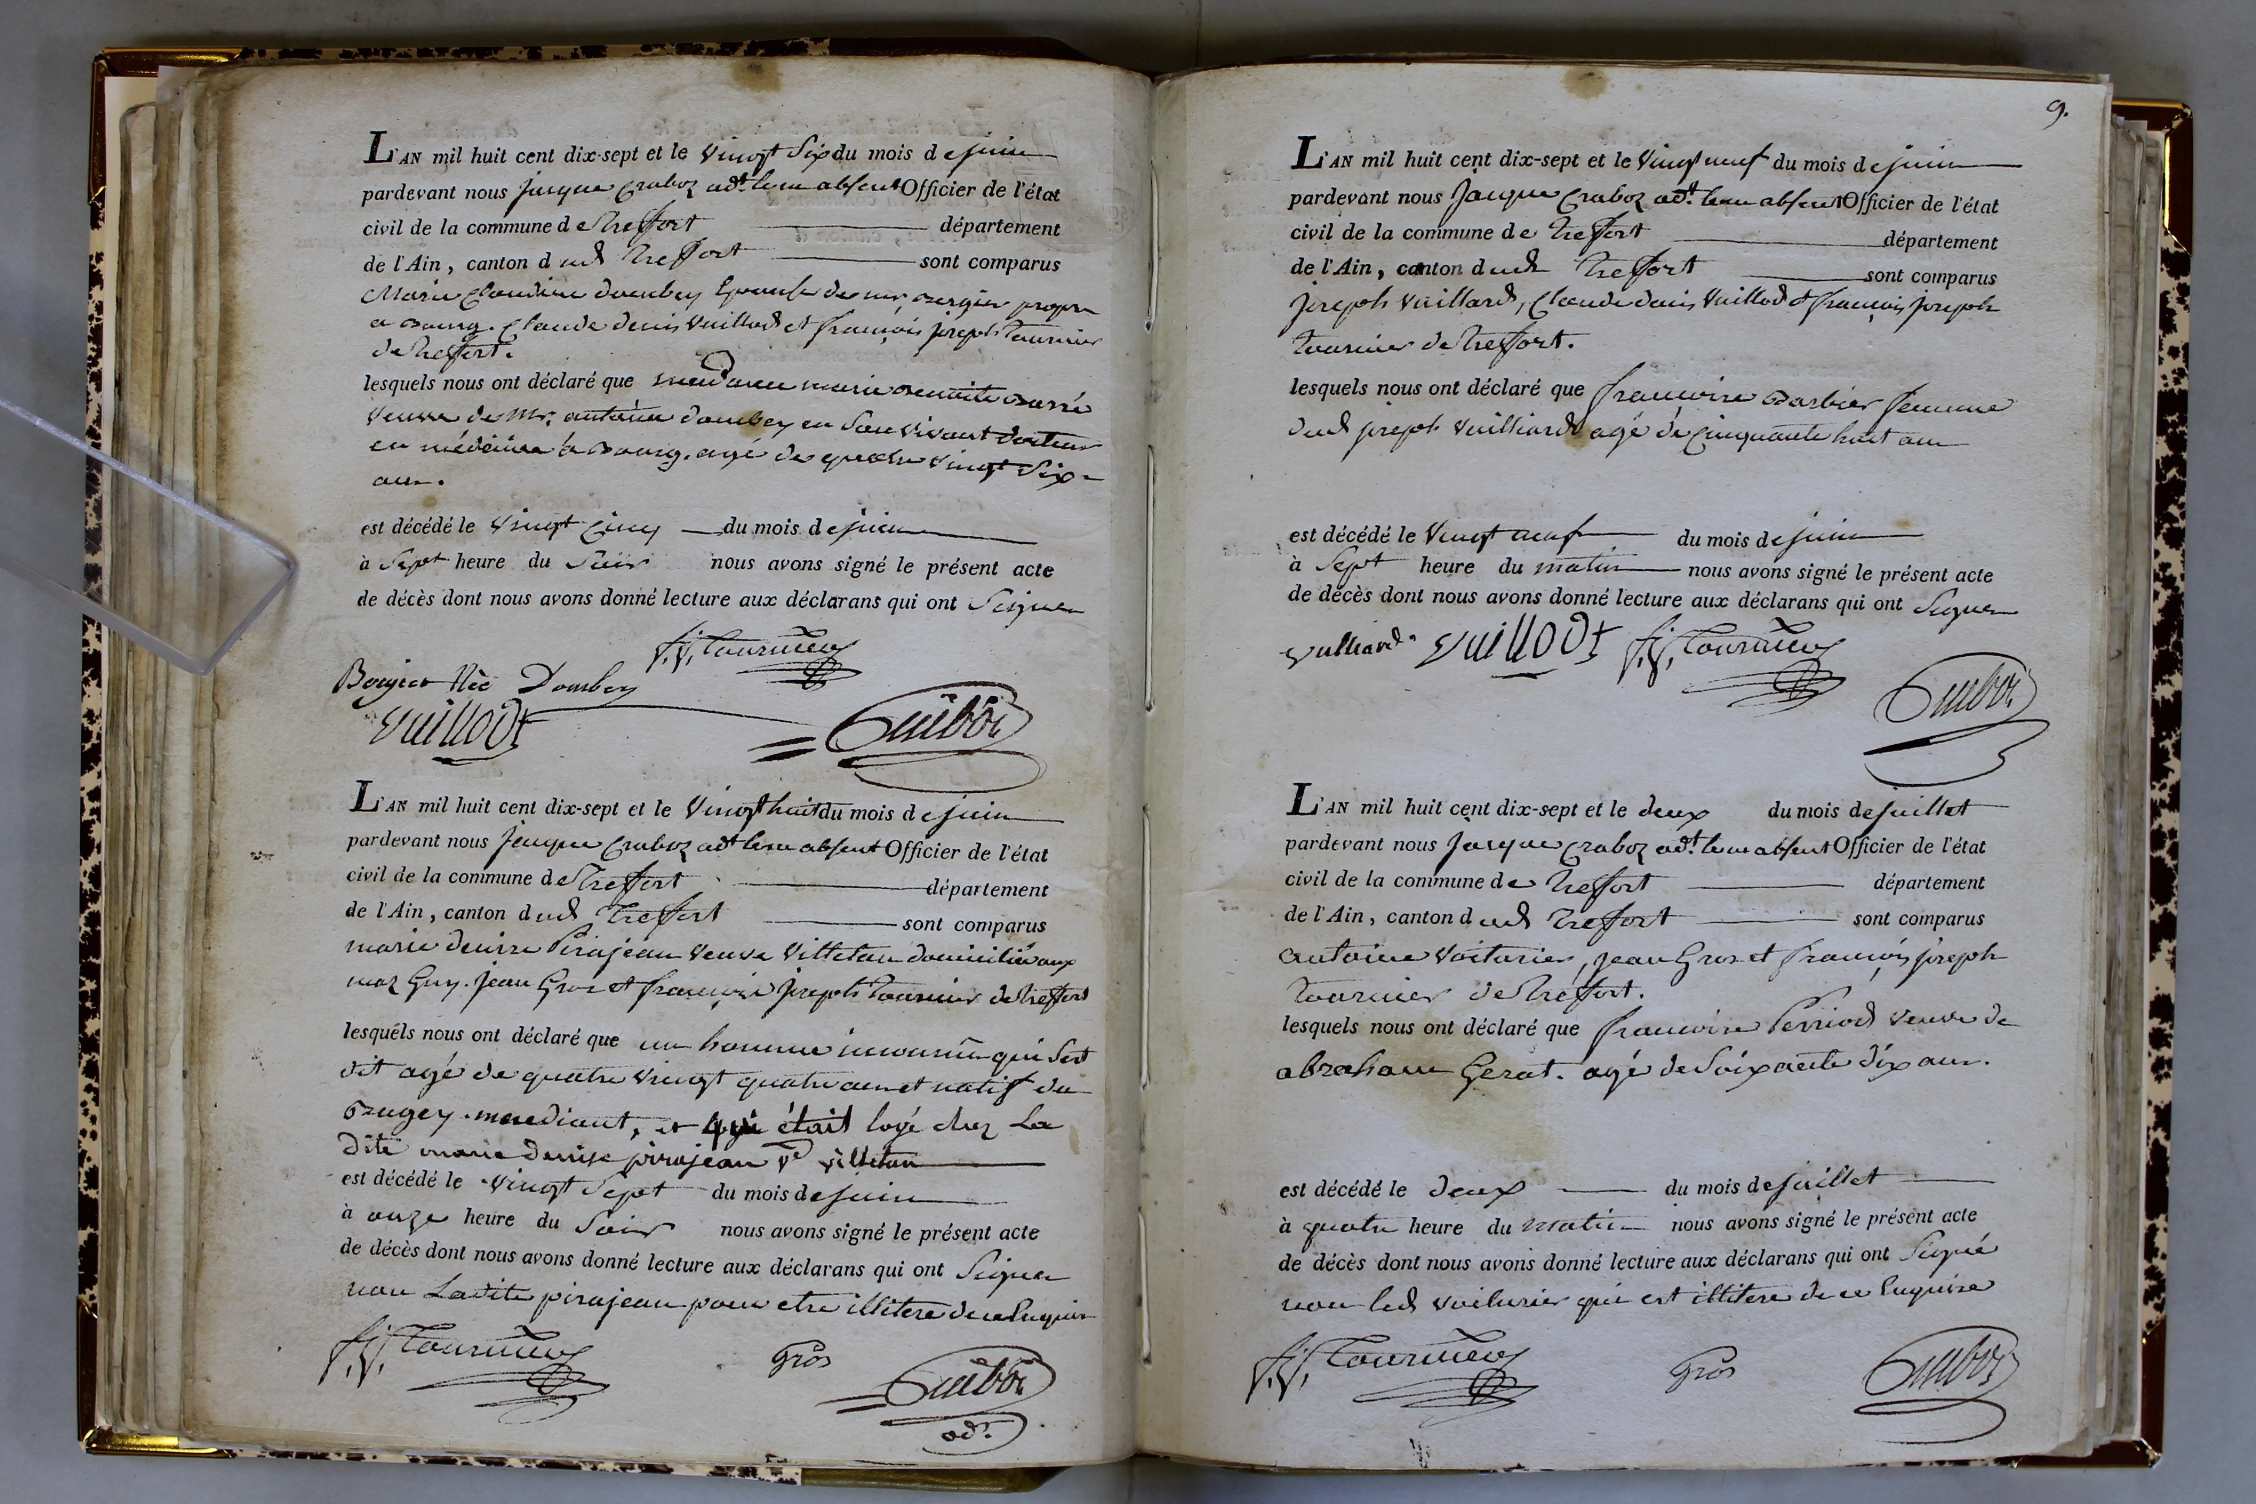 L'AN mil huit cent dix-sept et le vingt six du mois de juin
pardevant nous Jacque Craboz adt. le m absent Officier de l'état
civil de la commune de Treffort département
de l'Ain, canton dud Treffort sont comparus
Marie Claudine Dombey Epouse de mr. Bergier propre
a Bourg. Claude denis Vuillod et françois joseph Tournier
de Treffort.
lesquels nous ont déclaré que madame marie Benoite
veuve de Mr. antoine dombey en Son vivant docteur
en médecine à Bourg. agé de quatre vingt Six
ans.
est décédé le vingt cinq du mois de juin
à Sept heure du Soir nous avons signé le présent acte
de décès dont nous avons donné lecture aux déclarans qui ont Signer
f. j. Tournier
Bergier Née Dombey
Vuillodt
L'AN mil huit cent dix-sept et le Vingt huit du mois de juin
pardevant nous Jacque Craboz adt le m absent Officier de l'état
civil de la commune de Treffort département
de l'Ain, canton dud Treffort sont comparus
marie denise Pirajean veuve Villetan domicilié aux
maz Guy. Jean Gros et françois Joseph Tournier de Treffort
lesquels nous ont déclaré que un homme inconnu qui Sest
dit agé de quatre vingt quatre ans et natif du
Bugey. mendiant, et qui était logé chez La
dite marie denise pirajean ve villetan
est décédé le vingt Sept du mois de juin
à onze heure du Soir nous avons signé le présent acte
de décès dont nous avons donné lecture aux déclarans qui ont Signer
non Ladite pirajean pour etre illitere de ce Enquise
f. j. Tournier Gros
adt.
9.
L'AN mil huit cent dix-sept et le Vingt neuf du mois de juin
pardevant nous Jacque Craboz adt. le m absent Officier de l'état
civil de la commune de Treffort département
de l'Ain, canton dud Treffort sont comparus
joseph Vuillard, Claude denis Vuillod et françois joseph
Tournier de Treffort.
lesquels nous ont déclaré que françoise Barbier femme
dud joseph Vuilliard agé de cinquante huit ans
est décédé le Vingt neuf du mois de juin
à Sept heure du matin nous avons signé le présent acte
de décès dont nous avons donné lecture aux déclarans qui ont Signer
Vulliard Vuillodt f. j. Tournier
L'AN mil huit cent dix-sept et le deux du mois de juillet
pardevant nous Jacque Craboz adt. le m absent Officier de l'état
civil de la commune de Treffort département
de l'Ain, canton dud Treffort sont comparus
antoine Voiturier, Jean Gros et françois joseph
Tournier de Treffort.
lesquels nous ont déclaré que françoise Perriod veuve de
abraham Gerat. agé de Soixante dix ans.
est décédé le deux du mois de juillet
à quatre heure du matin nous avons signé le présent acte
de décès dont nous avons donné lecture aux déclarans qui ont Signé
non led voiturier qui est illitere de ce Enquise
f. j. Tournier Gros